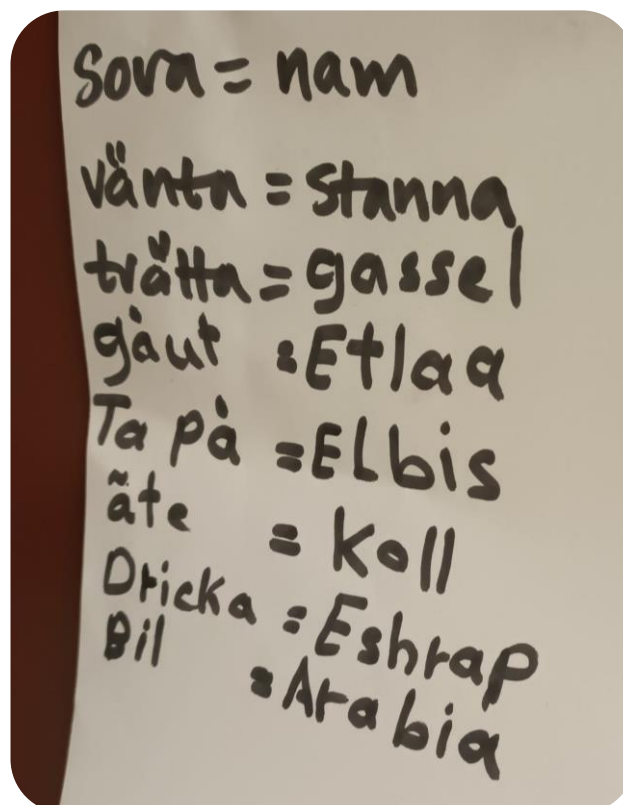 Sova = nam
vänta = Stanna
trätta = gassel
gåut = Etlaa
Ta på = Elbis
äte = Koll
Dricka = Eshrap
Bil = Arabia